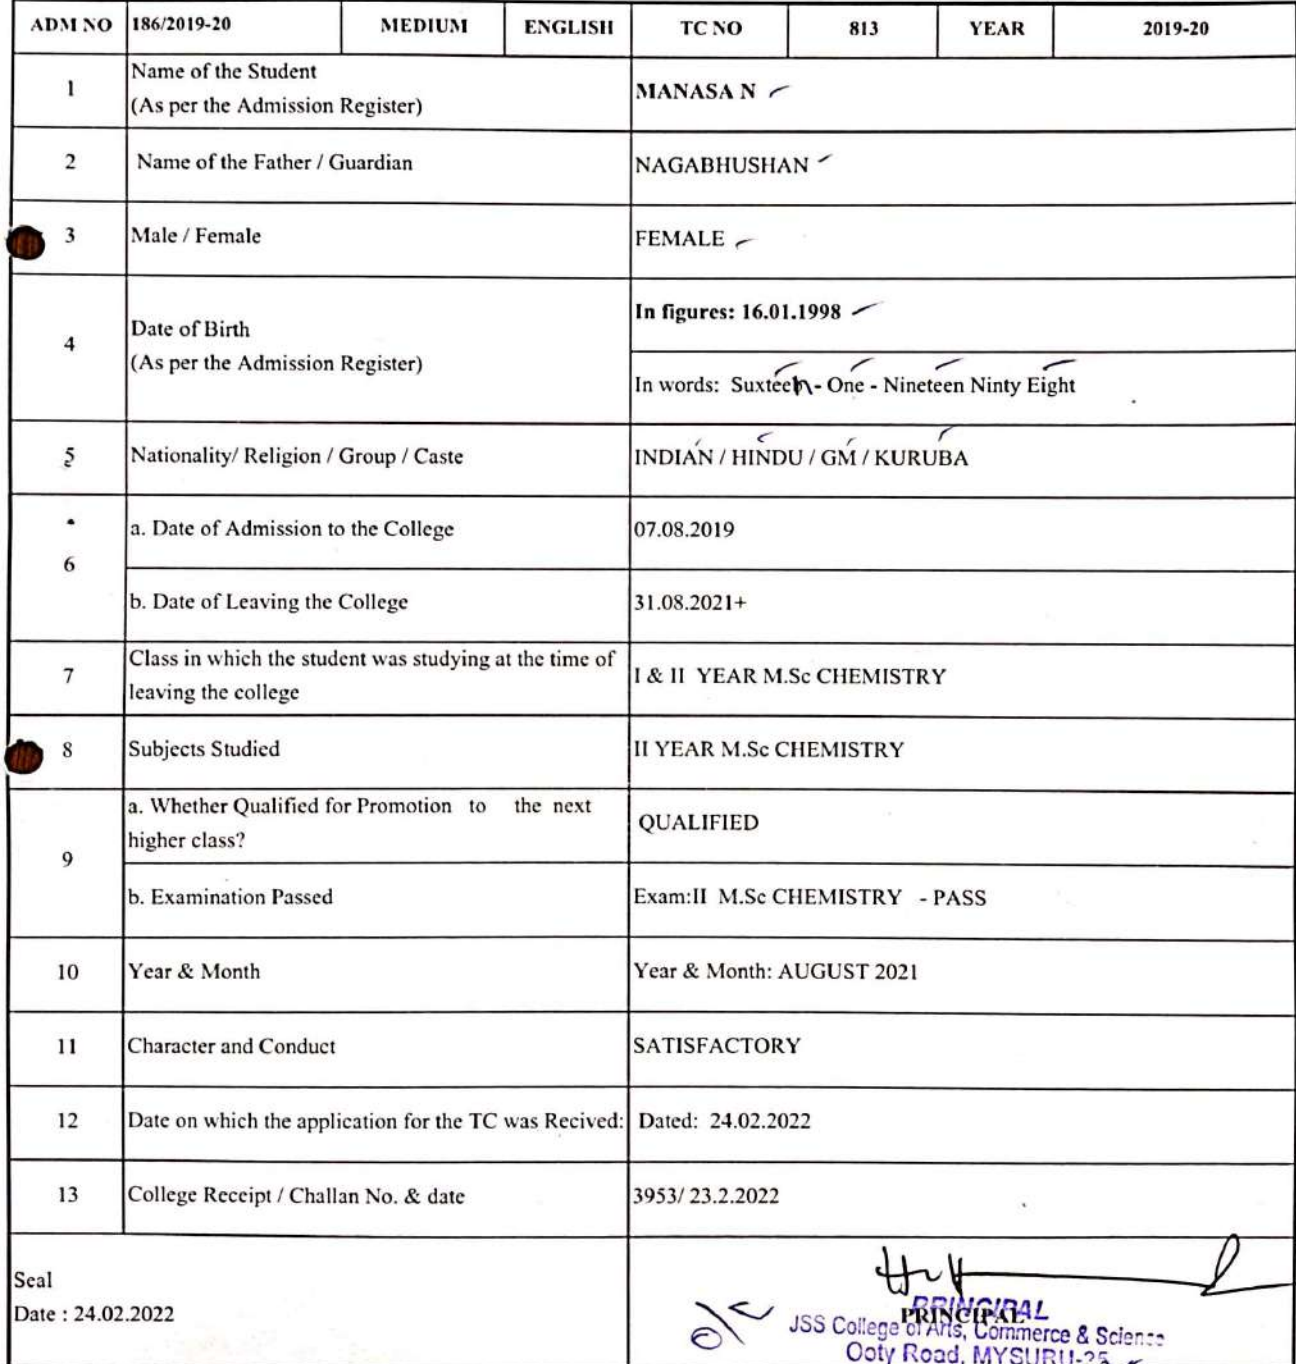 ADM NO 186/2019-20 MEDIUM ENGLISH TC NO 813 YEAR 2019-20
1 Name of the Student
(As per the Admission Register)
MANASA N
2 Name of the Father / Guardian NAGABHUSHAN
3 Male / Female FEMALE
4 Date of Birth
(As per the Admission Register)
In figures: 16.01.1998
In words: Suxteen - One - Nineteen Ninty Eight
5 Nationality/ Religion / Group / Caste INDIAN / HINDU / GM / KURUBA
6
a. Date of Admission to the College 07.08.2019
b. Date of Leaving the College 31.08.2021+
7 Class in which the student was studying at the time of
leaving the college
I & II YEAR M.Sc CHEMISTRY
8 Subjects Studied II YEAR M.Sc CHEMISTRY
9
a. Whether Qualified for Promotion to the next
higher class?
QUALIFIED
b. Examination Passed Exam:II M.Sc CHEMISTRY - PASS
10 Year & Month Year & Month: AUGUST 2021
11 Character and Conduct SATISFACTORY
12 Date on which the application for the TC was Recived: Dated: 24.02.2022
13 College Receipt / Challan No. & date 3953/ 23.2.2022
Seal
Date : 24.02.2022
PRINCIPAL
PRINCIPAL
JSS College of Arts, Commerce & Science
Ooty Road, MYSURU-25